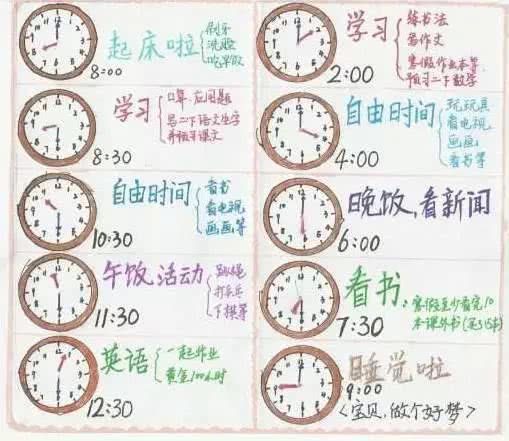 起床啦
刷牙
洗脸
吃早饭
8:00
学习
口算、应用题
写二下语文生字
并预习课文
8:30
自由时间
看书
看电视
画画等
10:30
午饭,活动
跳绳
打乒乓
下棋等
11:30
英语
一起作业
黄金100小时
12:30
学习
练书法
写作文
寒假作业本等
预习二下数学
2:00
自由时间
玩玩具
看电视
画画
看书等
4:00
晚饭,看新闻
6:00
看书
寒假至少看完10
本课外书
7:30
睡觉啦
9:00
<宝贝,做个好梦>